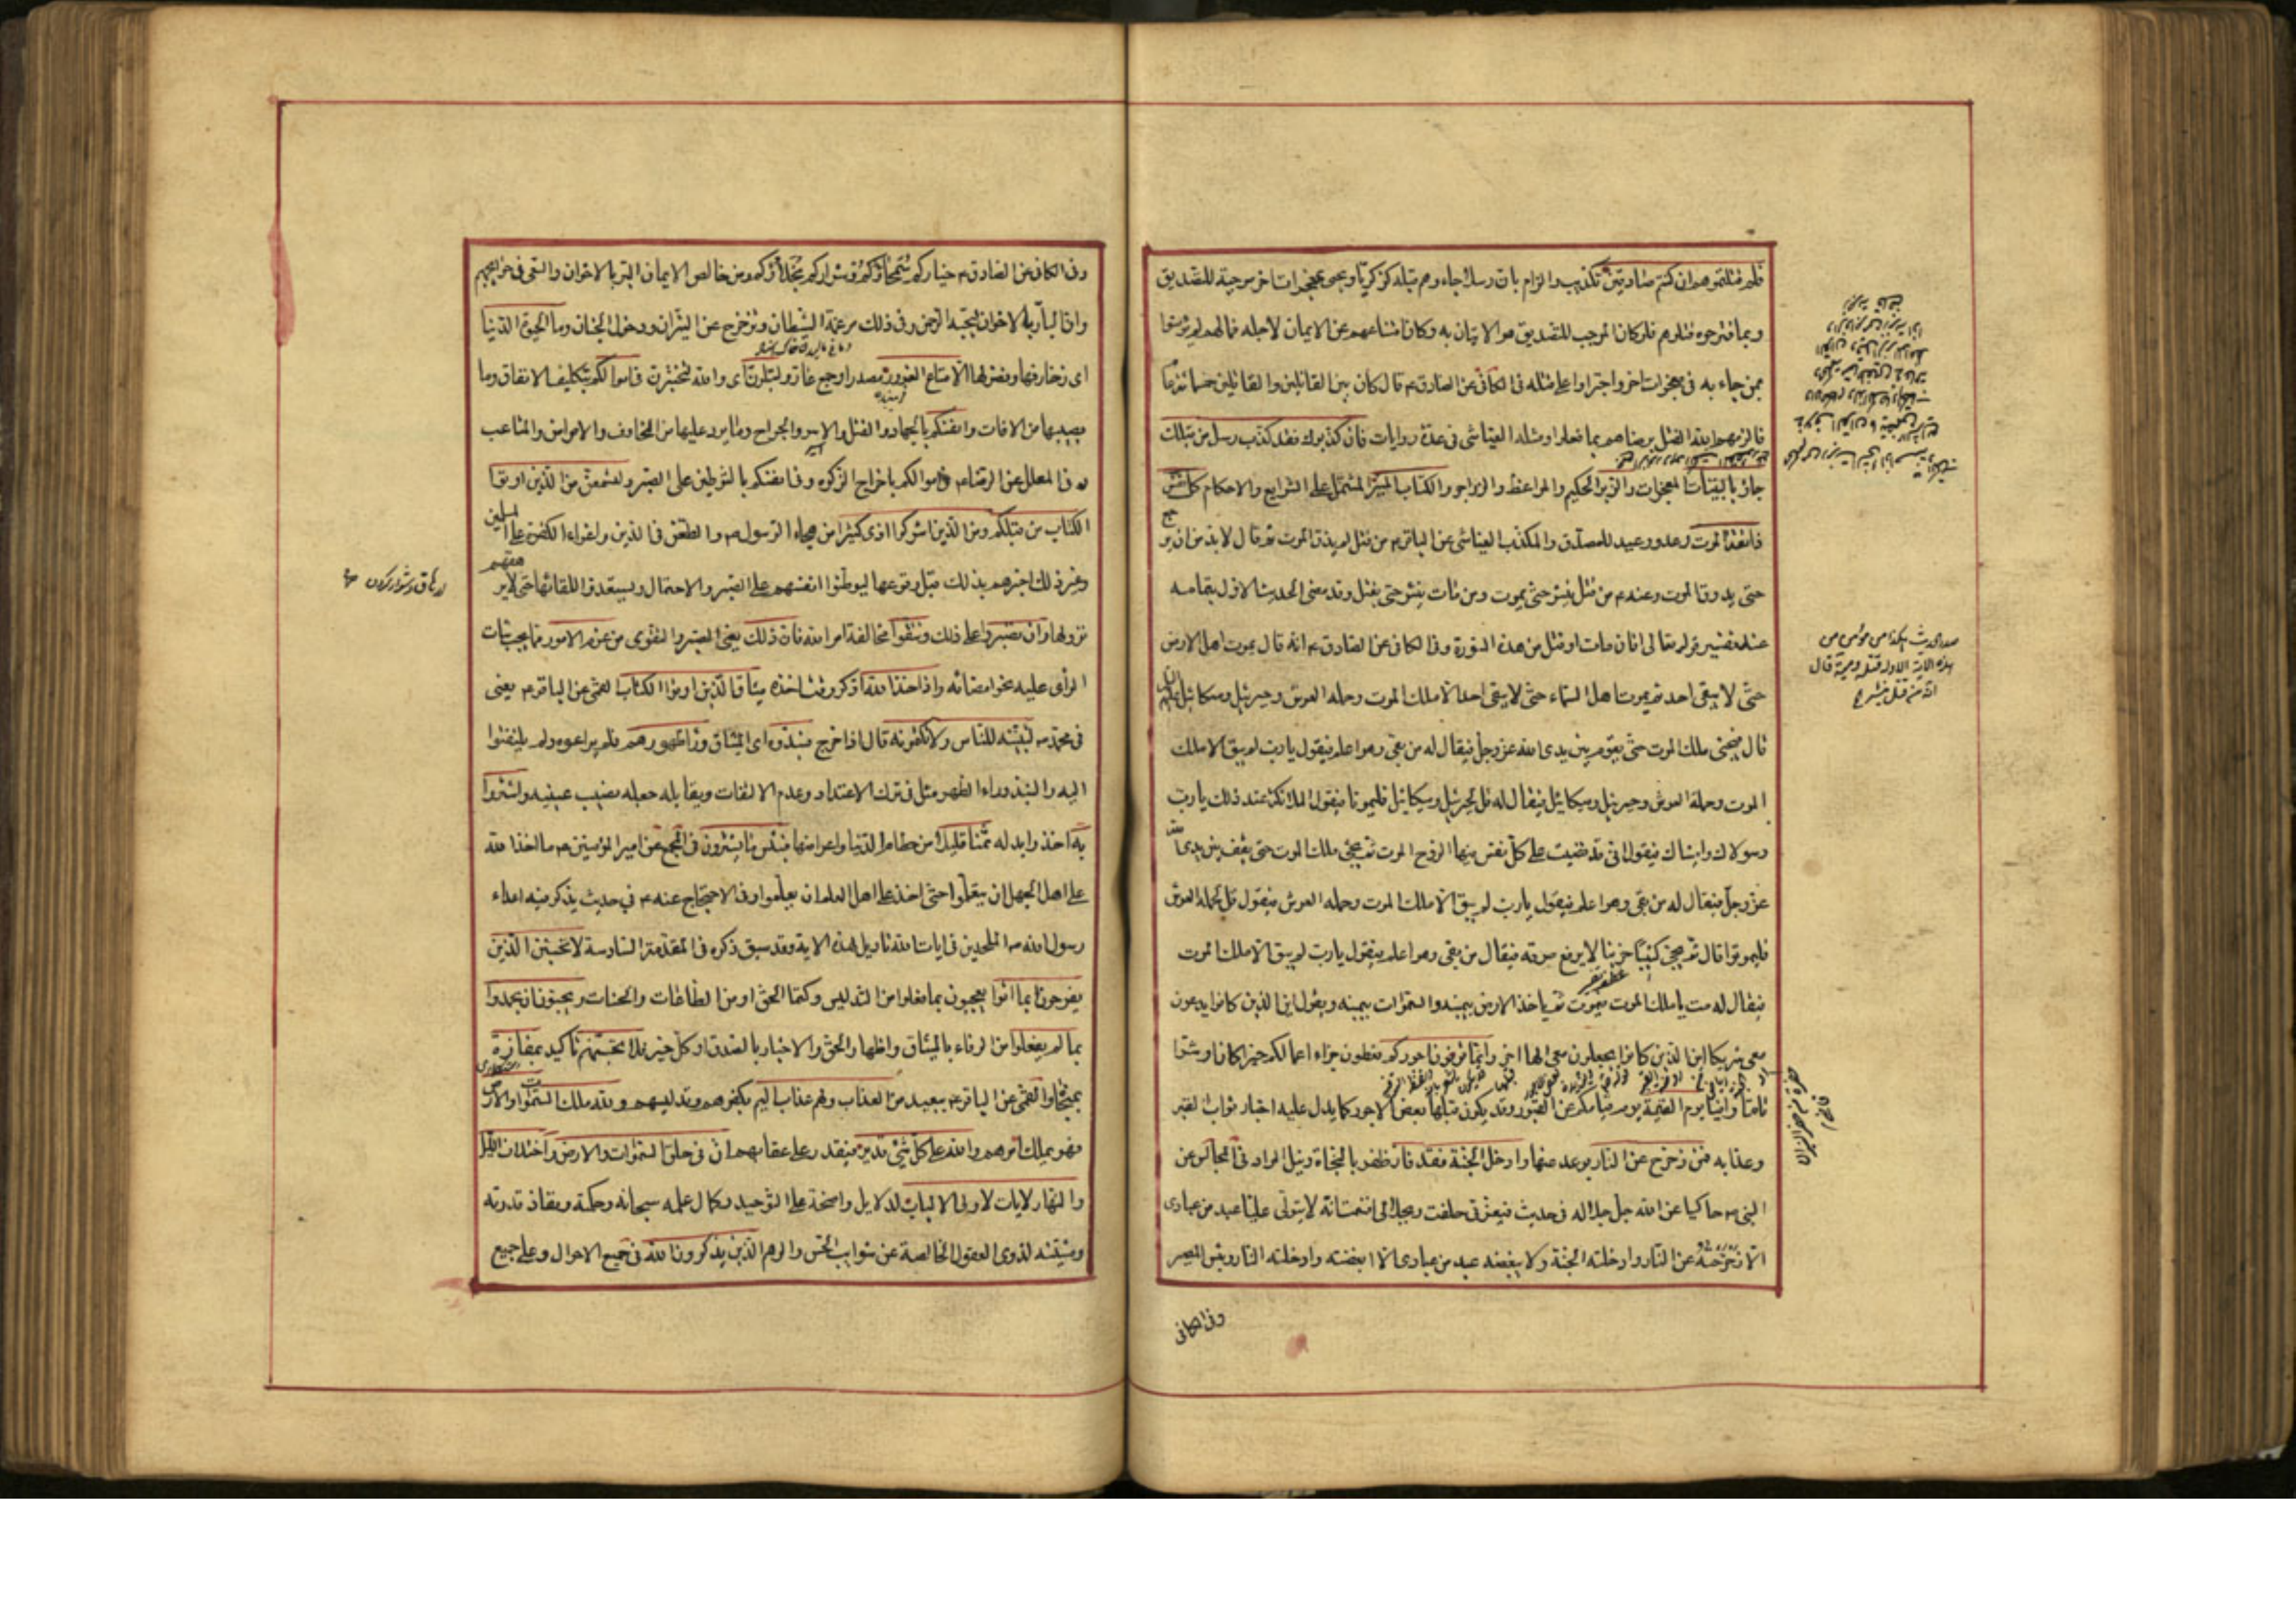 فلم قتلتموهم ان كنتم صادقين تكذيب والزام بان رسلا جاءوهم قبله كزكريا ويحيى بمعجزات اخر موجبة للتصديق
وبما اقترحوه فقتلوهم فلو كان الموجب للتصديق هو الاتيان به وكان امتناعهم عن الايمان لاجله فما لهم لم يؤمنوا
بمن جاء به فى معجزات اخر واجتراوا على قتله فى الكافى عن الصادق ع قال كان بين القاتلين والقائلين خمسمائة عام
فالزمهم الله القتل برضاهم بما فعلوا ومثله العياشى فى عدة روايات فان كذبوك فقد كذب رسل من قبلك
جاؤ بالبينات المعجزات والزبر الحكم والمواعظ والزواجر والكتاب المنير المشتمل على الشرايع والاحكام كل نفس
ذائقة الموت وعد ووعيد للمصدق والمكذب العياشى عن الباقر ع من قتل لم يذق الموت ثم قال لا بد من ان يرجع
حتى يذوق الموت وعنه ع من قتل ينشر حتى يموت ومن مات ينشر حتى يقتل وقد مضى الحديث الاول بتمامه
عند تفسير قوله تعالى افان مات او قتل من هذه السورة وفى الكافى عن الصادق ع انه قال يموت اهل الارض
حتى لا يبقى احد ثم يموت اهل السماء حتى لا يبقى احد الا ملك الموت وحملة العرش وجبرئيل وميكائيل عليهم السلام
قال فيجئ ملك الموت حتى يقوم بين يدى الله عز وجل فيقال له من بقى وهو اعلم فيقول يا رب لم يبق الا ملك
الموت وحملة العرش وجبرئيل وميكائيل فيقال له قل لجبرئيل وميكائيل فليموتا فيقول الملائكة عند ذلك يا رب
رسولاك وامیناك فيقول انى قد قضيت على كل نفس فيها الروح الموت ثم يجئ ملك الموت حتى يقف بين يدى الله
عز وجل فيقال له من بقى وهو اعلم فيقول يا رب لم يبق الا ملك الموت وحملة العرش فيقول قل لحملة العرش
فليموتوا قال ثم يجئ كئيبا حزينا لا يرفع طرفه فيقال من بقى وهو اعلم فيقول يا رب لم يبق الا ملك الموت
فيقال له مت يا ملك الموت فيموت ثم ياخذ الارض بيمينه والسموات بيمينه ويقول اين الذين كانوا يدعون
معى شريكا اين الذين كانوا يجعلون معى الها اخر وانما توفون اجوركم تعطون جزاء اعمالكم خيرا كان او شرا
تاما وافيا يوم القيمة يوم قيامكم عن القبور وقد يكون قبلها بعض الاجور كما يدل عليه اخبار ثواب القبر
وعذابه فمن زحزح عن النار بوعد عنها وادخل الجنة فقد فاز ظفر بالنجاة ونيل المراد فى المجالس عن
النبى ص حاكيا عن الله جل جلاله فى حديث فبعزتى حلفت وبجلالى اقسمت انه لا يتولى عليا عبد من عبادى
الا زحزحته عن النار وادخلته الجنة ولا يبغضه عبد من عبادى الا ابغضته وادخلته النار وبئس المصير
وفى الكافى
وفى الكافى عن الصادق ع خياركم سمحاؤكم وشراركم بخلاؤكم ومن خالص الايمان البر بالاخوان والسعى فى حوايجهم
وان البار بالاخوان ليحبه الرحمن وفى ذلك مرغمة الشيطان وتزحزح عن النيران ودخول الجنان وما الحيوة الدنيا
اى زخارفها وفضولها الا متاع الغرور مصدر او جمع غار ولتبلون اى والله لتختبرن فى اموالكم بتكليف الانفاق وما
يصيبها من الافات وانفسكم بالجهاد والقتل والاسر والجراح وما يرد عليها من المخاوف والامراض والمتاعب
وفى العلل عن الرضا ع فى اموالكم باخراج الزكوة وفى انفسكم بالتوطين على الصبر ولتسمعن من الذين اوتوا
الكتاب من قبلكم ومن الذين اشركوا اذى كثيرا من هجاء الرسول ص والطعن فى الدين واغراء الكفرة على المسلمين
وغير ذلك اخبرهم بذلك قبل وقوعها ليوطنوا انفسهم على الصبر والاحتمال ويستعدوا للقائها حتى لا يرهقهم
نزولها وان تصبروا على ذلك وتتقوا مخالفة امر الله فان ذلك يعنى الصبر والتقوى من عزم الامور مما يجب ثبات
الراى عليه نحو امضائه واذ اخذ الله اذكر وقت اخذه ميثاق الذين اوتوا الكتاب القمى عن الباقر ع يعنى
فى محمد ص لتبيننه للناس ولا تكتمونه قال اذا خرج فنبذوه اى الميثاق وراء ظهورهم فلم يراعوه ولم يلتفتوا
اليه والنبذ وراء الظهر مثل فى ترك الاعتداد وعدم الالتفات ويقابله جعله نصب عينيه واشتروا
به اخذوا بدله ثمنا قليلا من حطام الدنيا واعراضها فبئس ما يشترون فى المجمع عن امير المؤمنين ع ما اخذ الله
على اهل الجهل ان يتعلموا حتى اخذ على اهل العلم ان يعلموا وفى الاحتجاج عنه ع فى حديث يذكر فيه اعداء
رسول الله ص الملحدين فى ايات الله تاويل هذه الاية وقد سبق ذكره فى المقدمة السادسة لا تحسبن الذين
يفرحون بما اتوا يعجبون بما فعلوا من التدليس وكتمان الحق او من الطاعات والحسنات ويحبون ان يحمدوا
بما لم يفعلوا من الوفاء بالميثاق واظهار الحق والاخبار بالصدق او كل خير فلا تحسبنهم تاكيد بمفازة
بمنجاة القمى عن الباقر ع ببعيد من العذاب ولهم عذاب اليم بكفرهم وتدليسهم ولله ملك السموات والارض
فهو يملك امرهم والله على كل شئ قدير فيقدر على عقابهم ان فى خلق السموات والارض واختلاف الليل
والنهار لايات لاولى الالباب لدلايل واضحة على التوحيد وكمال علمه سبحانه وحكمته ونفاذ قدرته
ومشيته لذوى العقول الخالصة عن شوايب الحس والوهم الذين يذكرون الله فى جميع الاحوال وعلى جميع